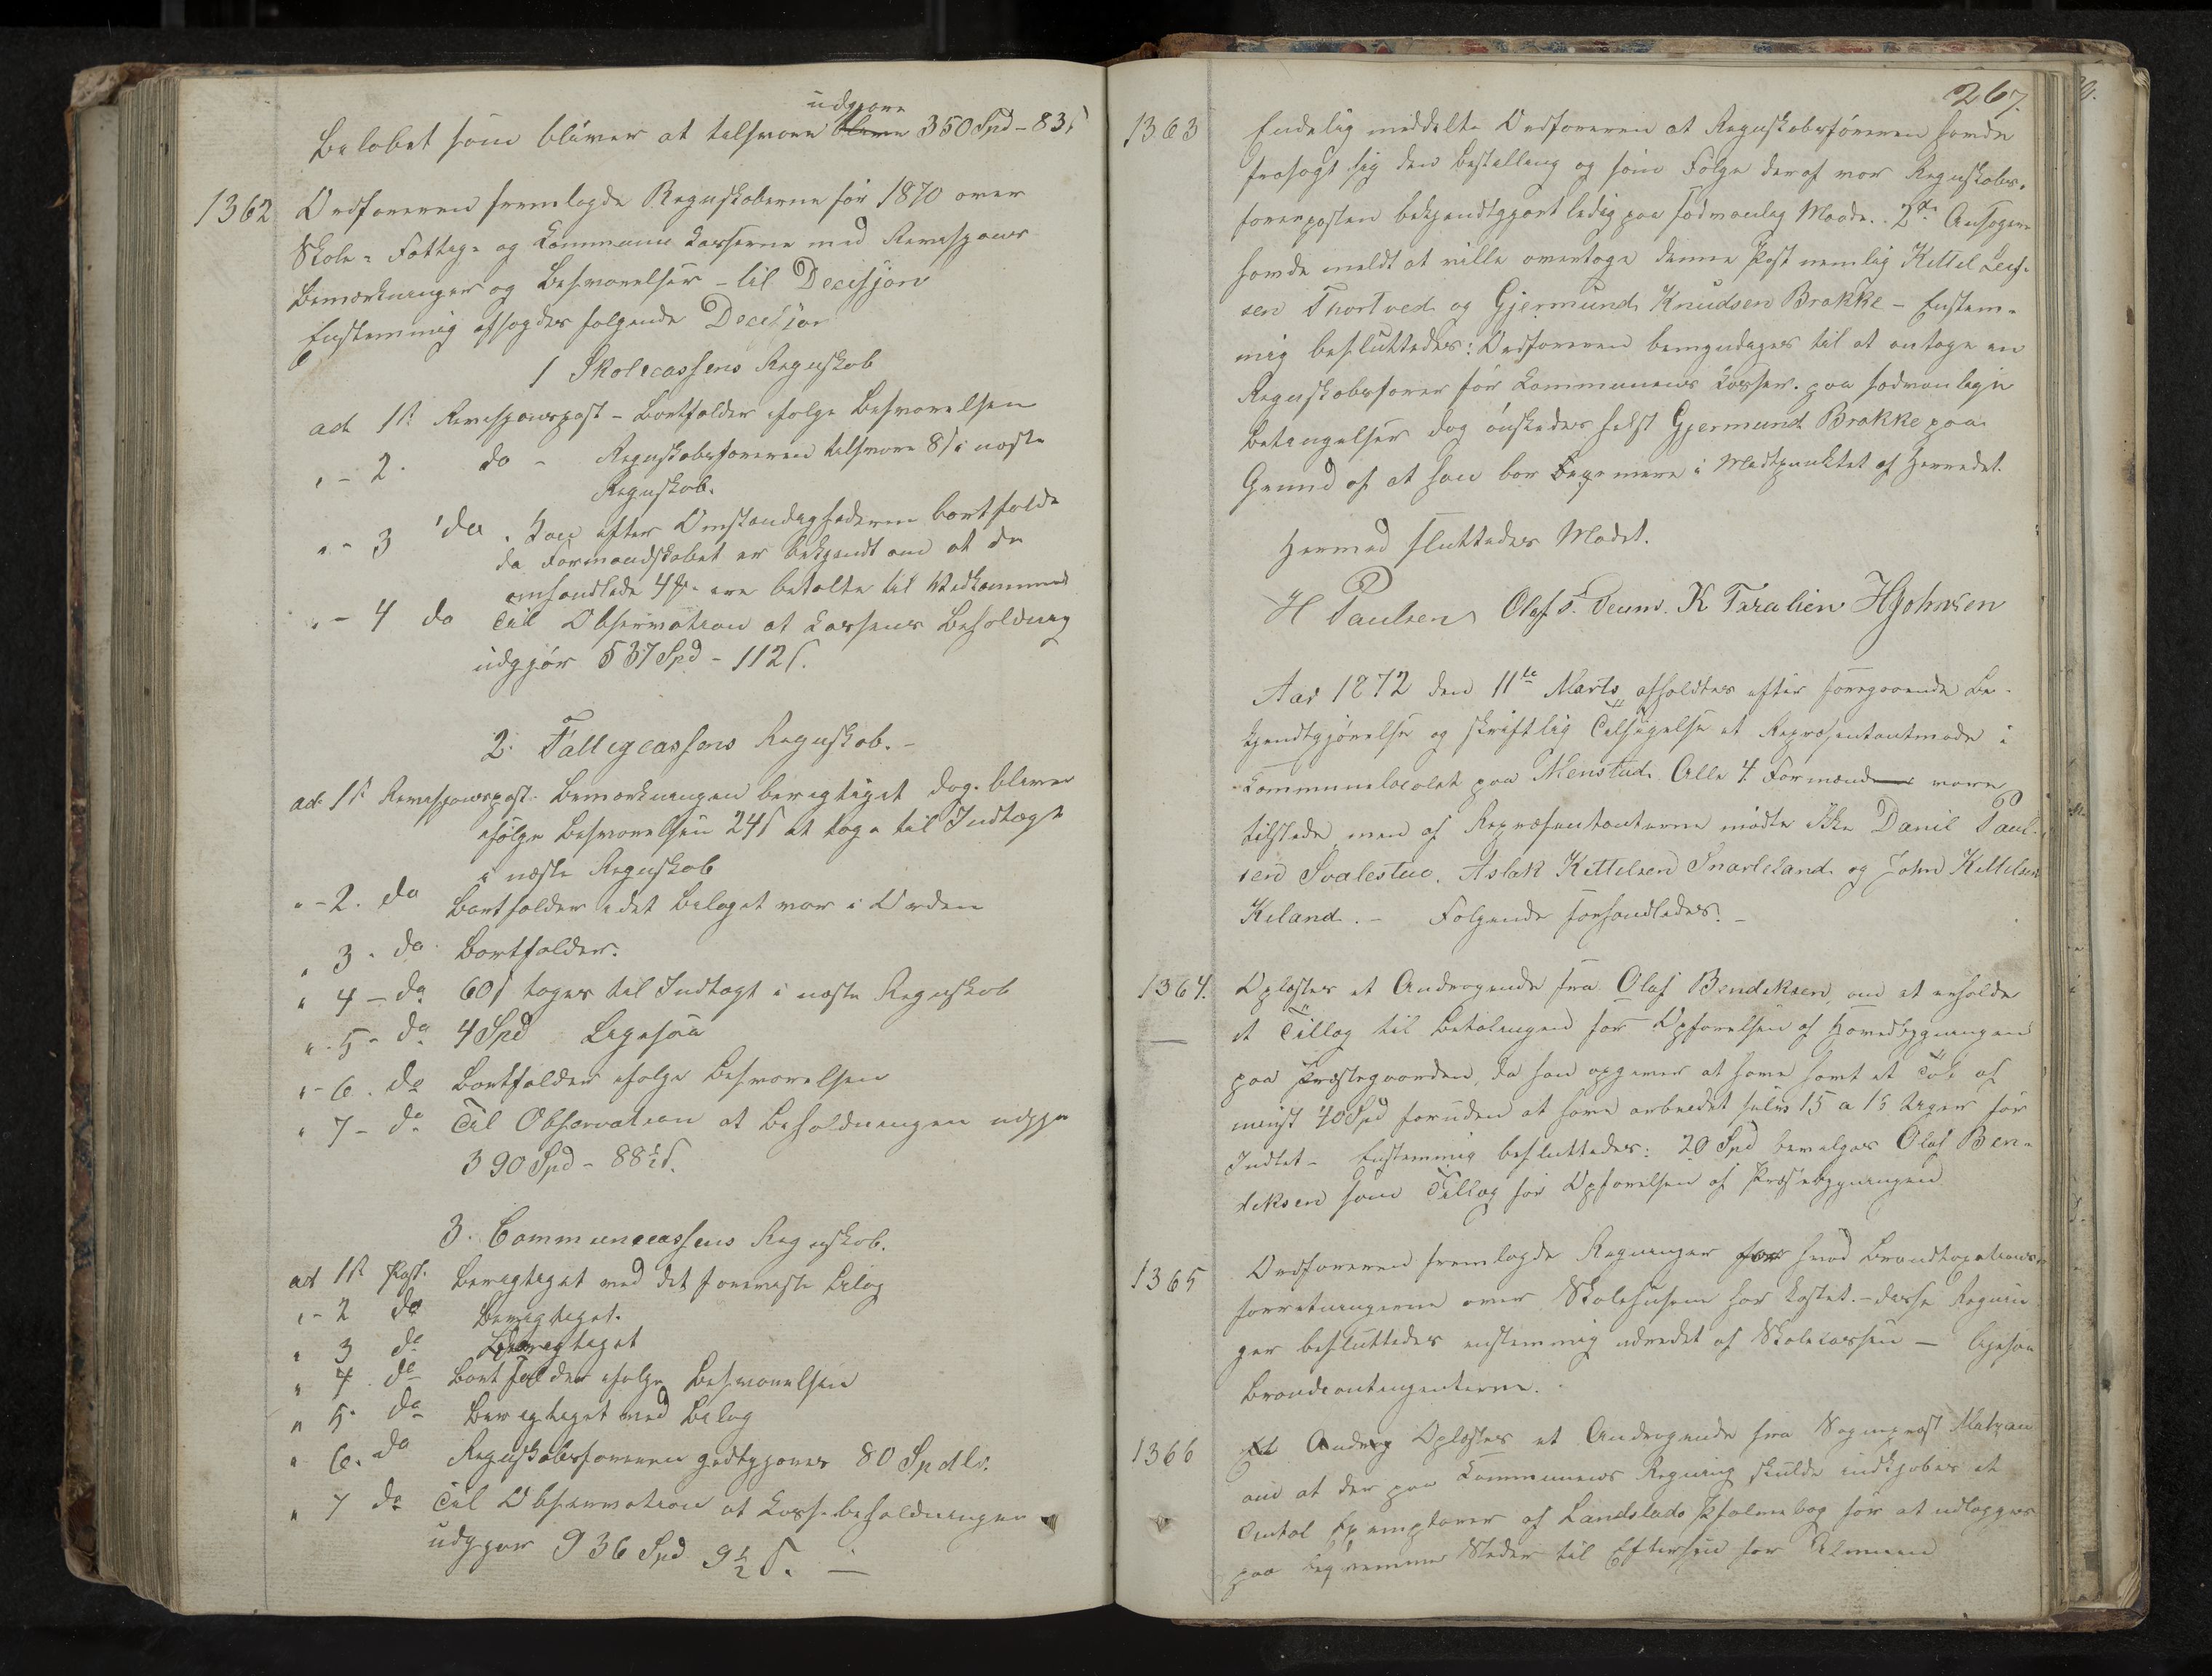 udgjøre
Beløbet som bliver at tilsvare blive 350 Spd - 83 s
1362 Ordføreren fremlagde Regnskaberne for 1870 over
Skole- Fattig- og Kommune Kasserne med Revisjons
Bemærkninger og Besvarelser - til Decisjon
Enstemmig afsagdes følgende Decisjon
1 Skolecassens Regnskab
ad 1ste Revisjonspost - Bortfalder ifølge Besvarelsen
" - 2. do - Regnskabsføreren tilsvare 8 s i næste
Regnskab.
" - 3 do. Kan efter Omstændighederne bortfalde
da Formandskabet er bekjendt om at de
omhandlede 4 ere betalte til Vedkommende
" - 4 do Til Observation at Kassens Beholdning
udgjør 537 Spd - 112 s.
2. Fattigcassens Regnskab. -
ad 1ste Revisjonspost. Bemærkningen berigtiget dog bliver
ifølge Besvarelsen 24 s at tage til Indtægt
i næste Regnskab
" - 2. do Bortfalder idet Beløbet var i Orden
" 3. do. Bortfalder.
" 4 - do 60 s tages til Indtægt i næste Regnskab
" 5 - do 4 Spd Ligesaa
" - 6. do Bortfalder ifølge Besvarelsen
" 7 - do Til Observation at Beholdningen udgjør
390 Spd - 88½ s.
3. Communecassens Regnskab.
ad 1ste Post. Berigtiget med det foreviste Bilag
" - 2 do Berigtiget.
" 3 do Berigtiget
" 4. do Bortfalder ifølge Besvarelsen
" 5. do Berigtiget med Bilag
" 6. do Regnskabsføreren godtgjøres 80 Spdlr.
" 7 do Til Observation at Kassebeholdningen
udgjør 936 Spd 9½ s. —
267.
1363 Endelig meddelte Ordføreren at Regnskabsføreren havde
frasagt sig den Bestilling og som Følge deraf var Regnskabs-
førerposten bekjendtgjort ledig paa sædvanlig Maade. 2de Ansøgere
havde meldt at ville overtage denne Post nemlig Kittel Leif-
sen Thortved og Gjermund Knudsen Brakke - Enstem-
mig besluttedes: Ordføreren bemyndiges til at antage en
Regnskabsfører for Kommunens Kasser. paa sædvanlige
Betingelser dog ønskedes helst Gjermund Brakke paa
Grund af at han bor mere i Midtpunktet af Herredet.
Hermed sluttedes Mødet.
H Paulsen Olaf S. K Taralien HJohnsen
Aar 1872 den 11te Marts afholdtes efter foregaaende Be-
kjendtgjørelse og skriftlig Tilsigelse et Repræsentantmøde i
Kommunelocalet paa Menstad. Alle 4 Formænd vare
tilstede, men af Repræsentanterne mødte ikke Danil Paul-
sen Svalestuo, Aslak Kittelsen Snarteland og John Kittelsen
Kiland. - Følgende forhandledes. -
1364. Oplæstes et Andragende fra Olaf Bendiksen, om at erholde
et Tillæg til Betalingen for Opførelsen af Hovedbygningen
paa Præstegaarden, da han opgiver at have havt et Tab af
mindst 40 Spd foruden at have arbeidet selv 15 a 16 Uger for
Intet - Enstemmig besluttedes: 20 Spd bevilges Olaf Ben-
diksen som Tillæg for Opførelsen af Præstebygningen
1365 Ordføreren fremlagde Regninger for hvad Brandtaxations-
forretningerne over Skolehusene har kostet. - disse Regnin-
ger besluttedes enstemmig udredet af Skolecassen — ligesaa
Brandcontingenterne.
1366 Et Andrag Oplæstes et Andragende fra Sogneprest
om at der paa Kommunens Regning skulde indkjøbes et
Antal Exemplarer af Landstads Psalmebog for at udlægges
paa Steder til Eftersyn for Almuen